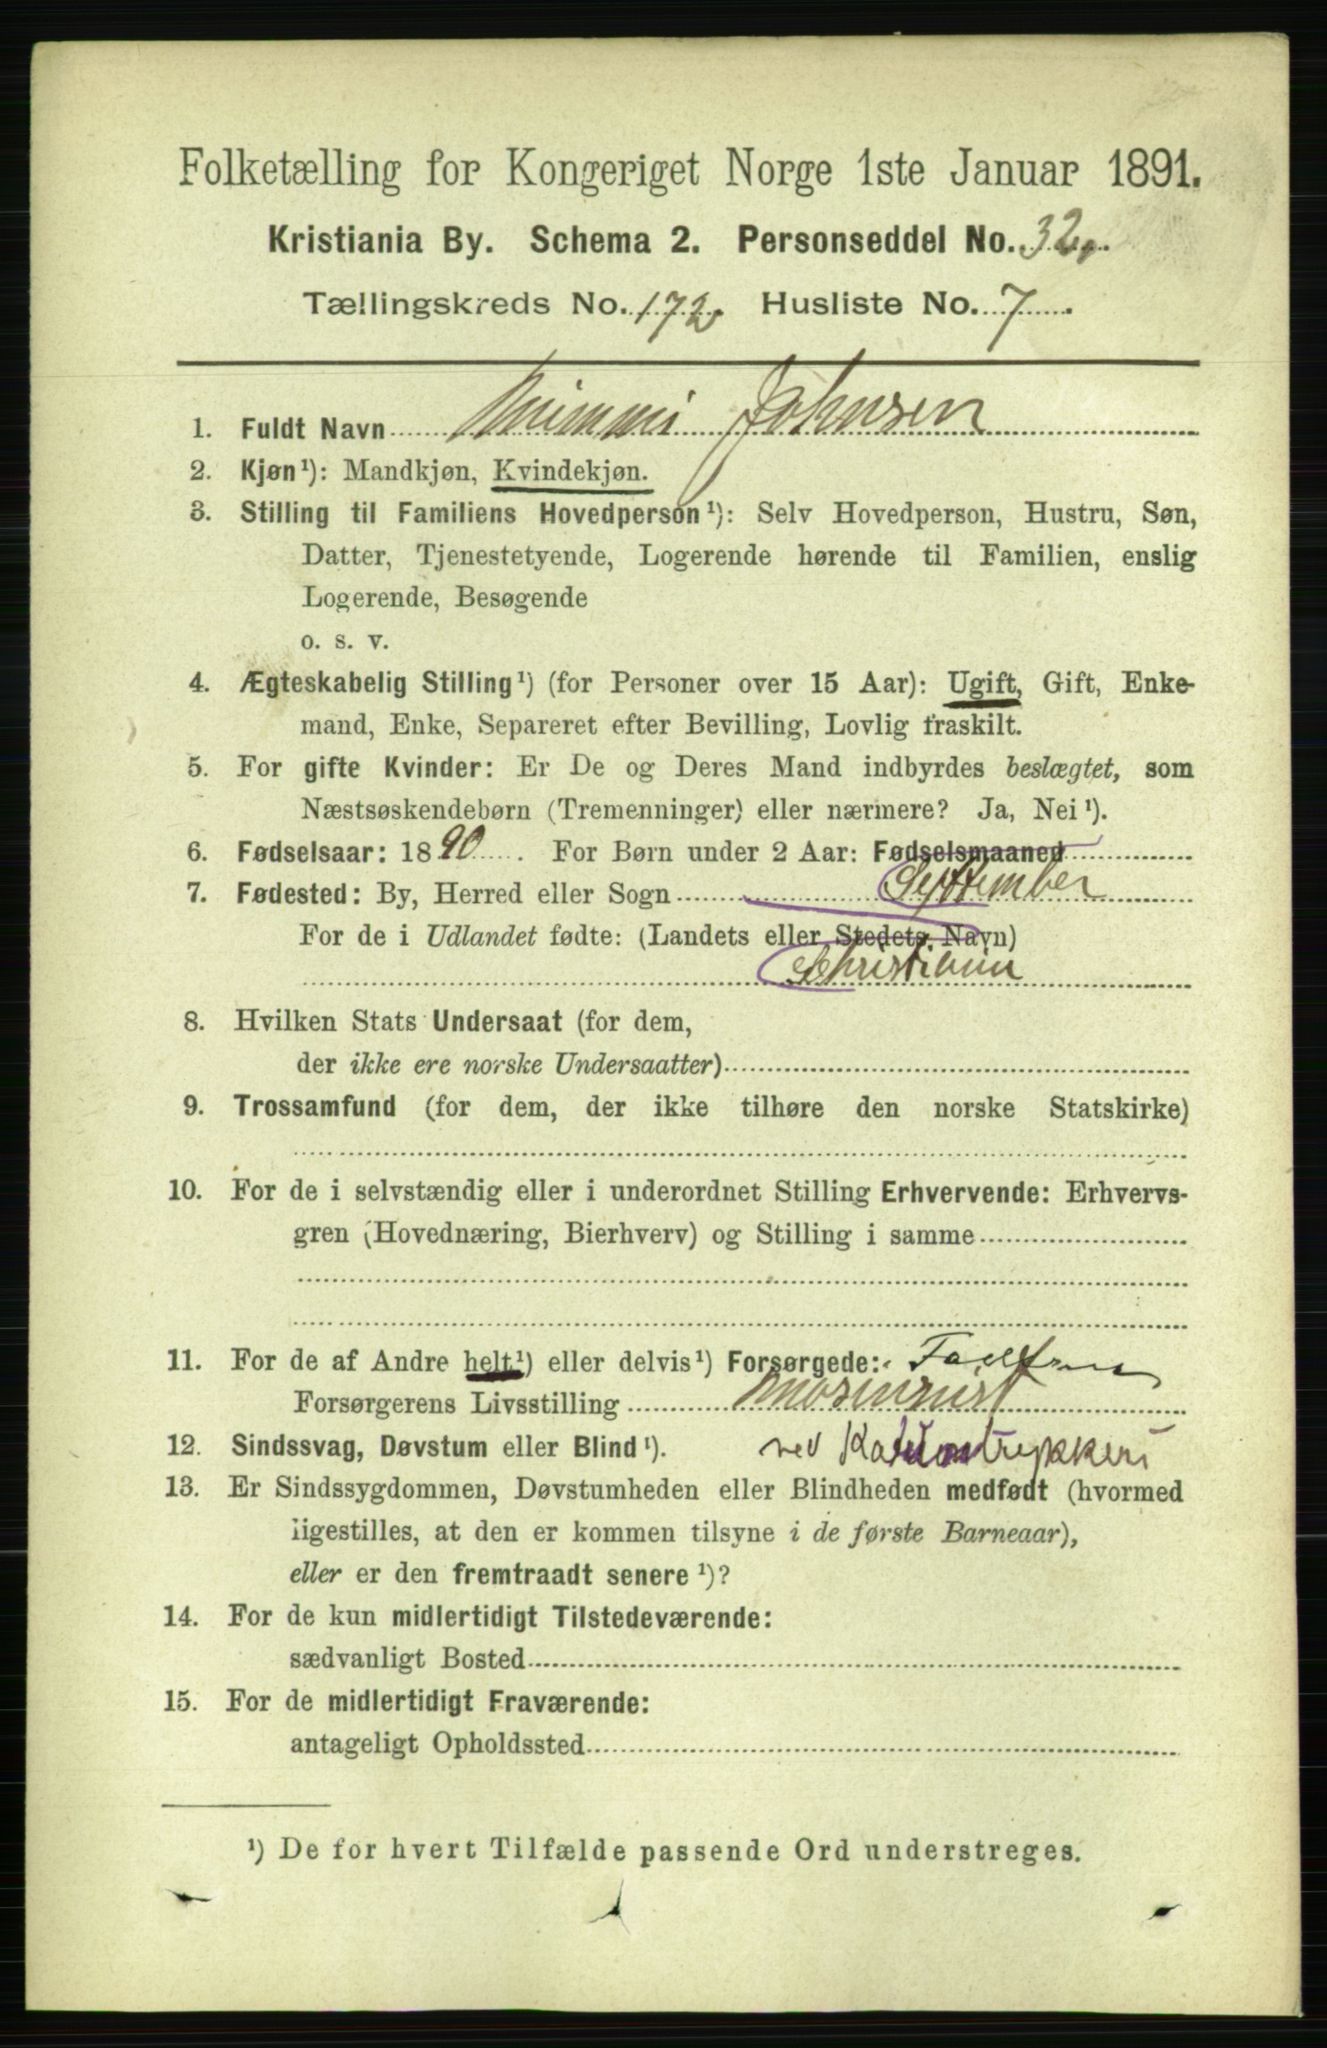 Folketælling for Kongeriget Norge 1ste Januar 1891.
Kristiania By. Schema 2. Personseddel No. 32.
Tællingskreds No. 172. Husliste No. 7.
1. Fuldt Navn Mimmi Johnsen
2. Kjøn¹): Mandkjøn, Kvindekjøn.
3. Stilling til Familiens Hovedperson¹): Selv Hovedperson, Hustru, Søn,
Datter, Tjenestetyende, Logerende hørende til Familien, enslig
Logerende, Besøgende
o. s. v.
4. Ægteskabelig Stilling¹) (for Personer over 15 Aar): Ugift, Gift, Enke-
mand, Enke, Separeret efter Bevilling, Lovlig fraskilt.
5. For gifte Kvinder: Er De og Deres Mand indbyrdes beslægtet, som
Næstsøskendebørn (Tremenninger) eller nærmere? Ja, Nei¹).
6. Fødselsaar: 1890. For Børn under 2 Aar: Fødselsmaaned
7. Fødested: By, Herred eller Sogn September
For de i Udlandet fødte: (Landets eller Stedets Navn)
Christiania
8. Hvilken Stats Undersaat (for dem,
der ikke ere norske Undersaatter)
9. Trossamfund (for dem, der ikke tilhøre den norske Statskirke)
10. For de i selvstændig eller i underordnet Stilling Erhvervende: Erhvervs-
gren (Hovednæring, Bierhverv) og Stilling i samme
11. For de af Andre helt¹) eller delvis¹) Forsørgede:
Forsørgerens Livsstilling
12. Sindssvag, Døvstum eller Blind¹). ved
13. Er Sindssygdommen, Døvstumheden eller Blindheden medfødt (hvormed
ligestilles, at den er kommen tilsyne i de første Barneaar),
eller er den fremtraadt senere¹)?
14. For de kun midlertidigt Tilstedeværende:
sædvanligt Bosted
15. For de midlertidigt Fraværende:
antageligt Opholdssted
¹) De for hvert Tilfælde passende Ord understreges.